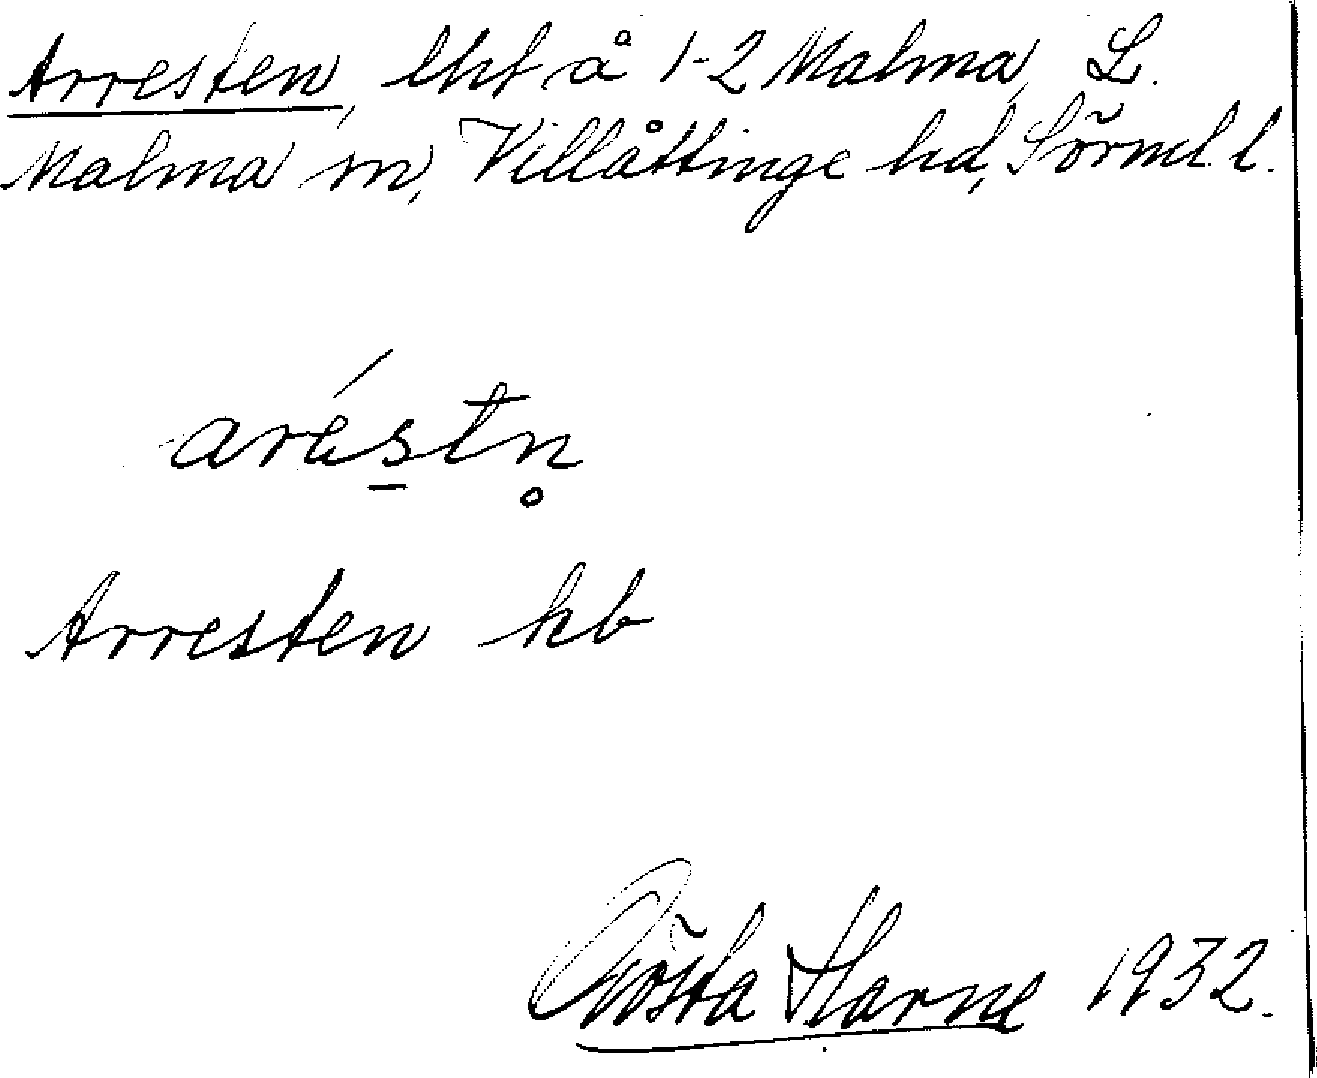 Arresten, lht å 1-2 Malma, L.
Malma sn, Villåttinge hd, Sörml. l.
aréstn̥
Arresten kb
Gösta Harne 1932.